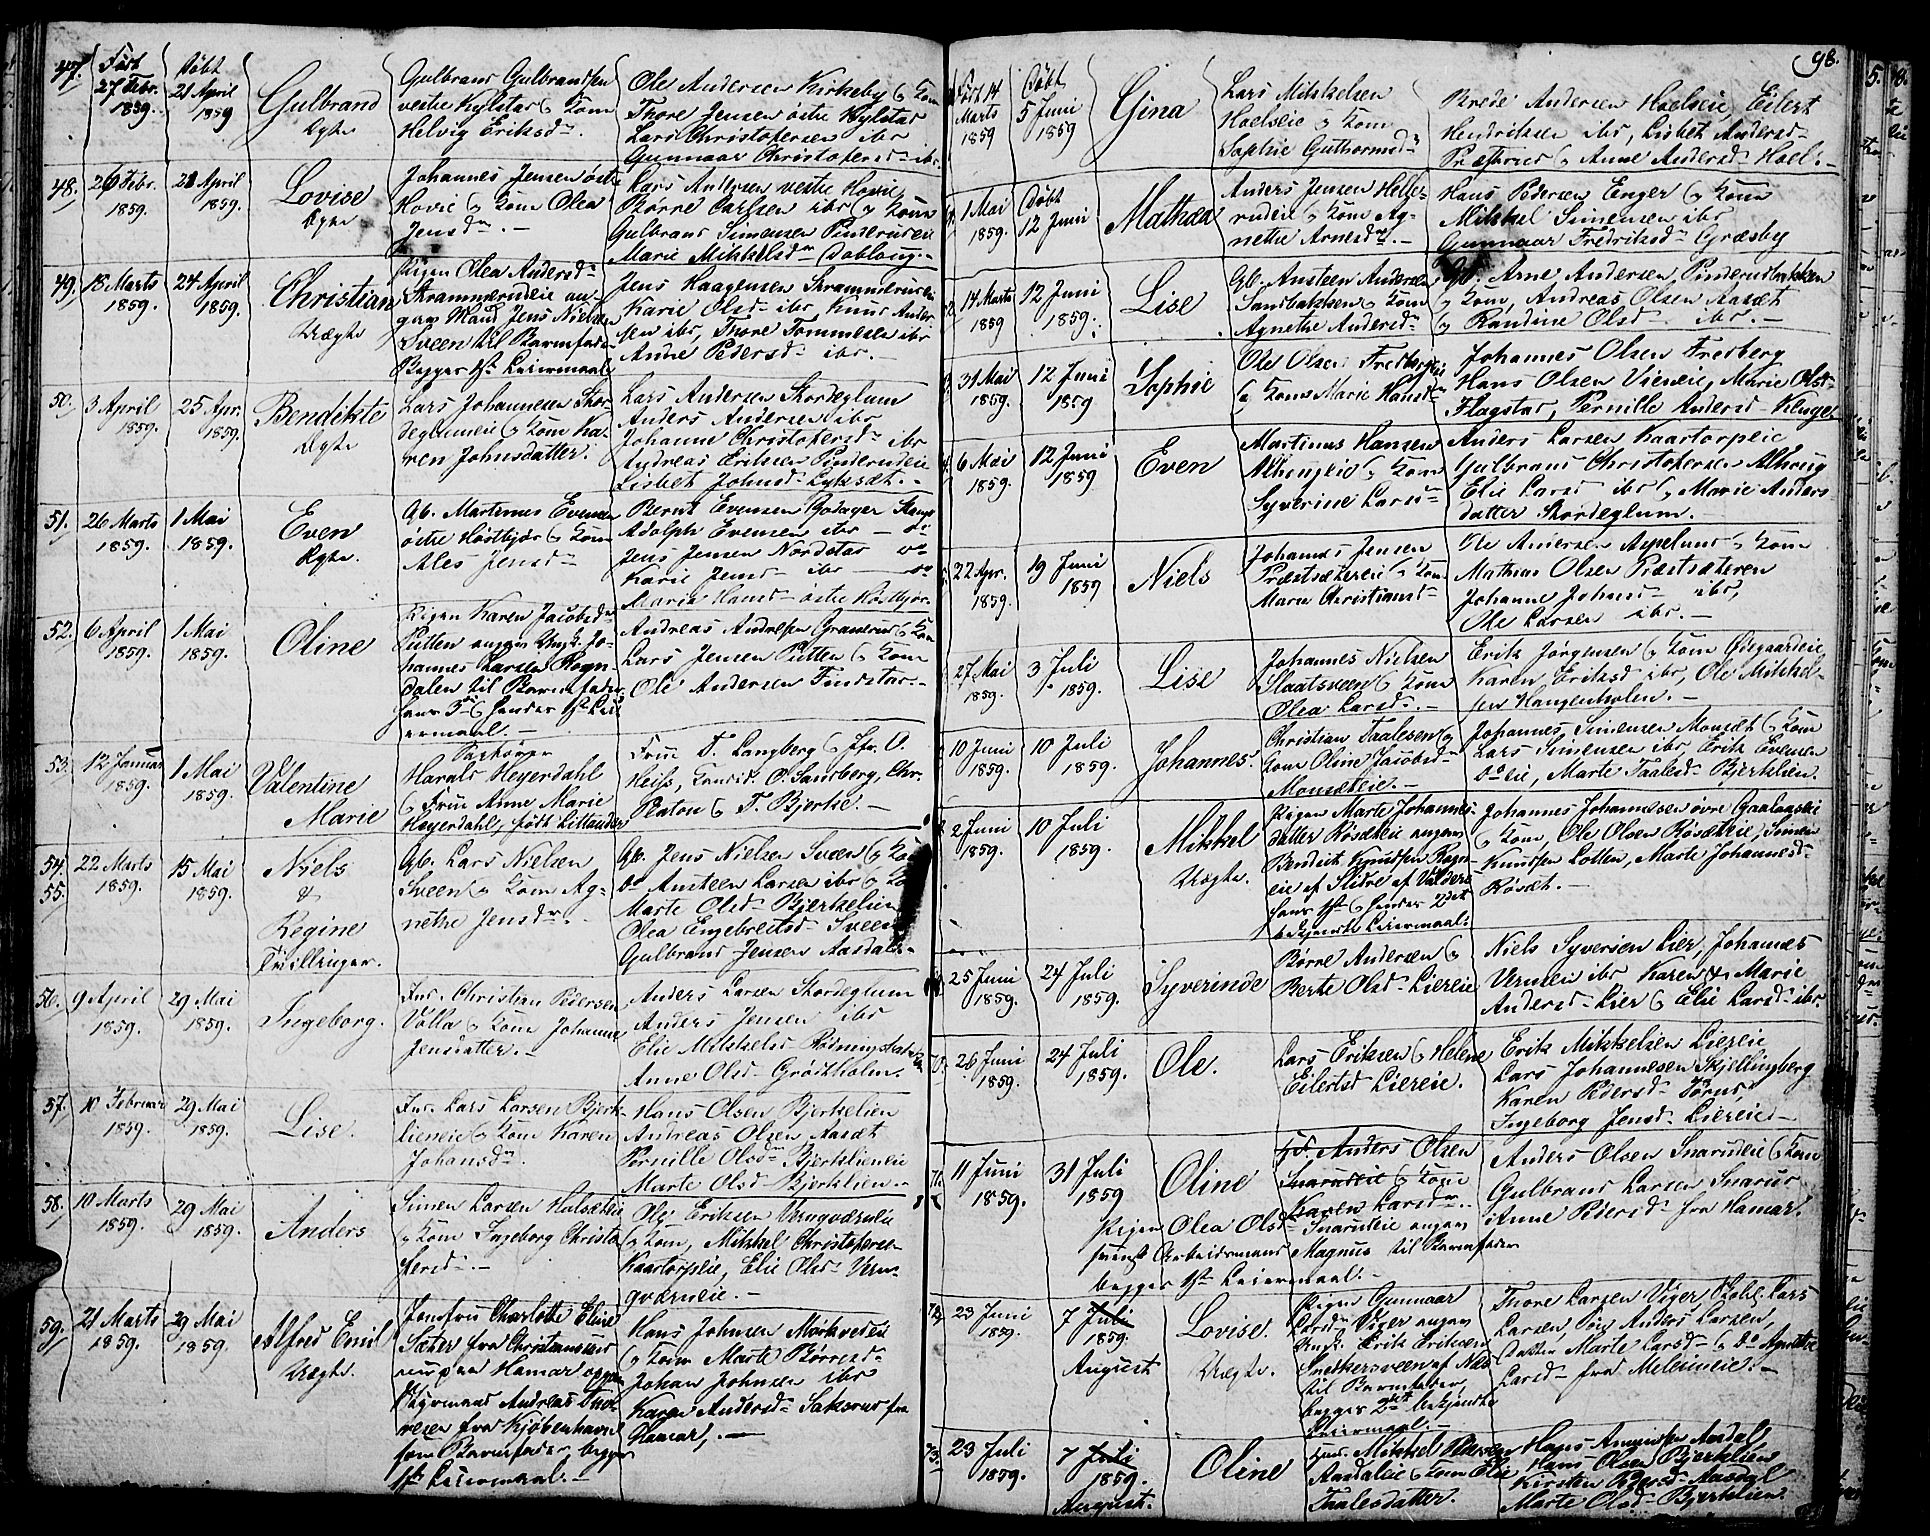 98.
47. Født 27 Febr. 1859. Døbt 21 April 1859
Gulbrand
Ægte
Gulbrand Gulbrandsen
vestre Kylstad og Kone
Helvig Eriksdr.
Ole Andersen Kirkeby og Kone
Thore Jensen østre Kylstad
Lars Christophersen ibr
Gunnaar Christophersdr ibr.
48. 26 Febr. 1859. 21 April 1859.
Lovise
Ægte
Johannes Jensen østre
Hovie og Kone Olea
Jensdr. —
Lars Andersen vestre Hovie,
Børre Carlsen ibr og Kone
Gulbrand Simensen Pinderudeie
Marie Mikkelsdr Dobloug. —
49. 18 Marts 1859. 24 April 1859.
Christian
Uægte
Pigen Olea Andersdr
Strammerudeie an-
gav Mand Jens Nielsen
Sveen til Barnefader
Begges 1ste Leiermaal
Jens Haagensen Strammerudeie
Karie Olsdr ibr Knud Ander-
sen ibr, Thore Tommesen ibr
Anne Pedersdr ibr. —
50. 3 April 1859. 25 Apr. 1859.
Bendikte
Ægte
Lars Johannesen Skor-
deglumeie og Kone Ka-
ren Johnsdatter.
Lars Andersen Skordeglum
Anders Andersen ibr
Johanne Christophersdr ibr
Andreas Eriksen Pinderudeie
Lisbet Johnsdr Lyksæt. —
51. 26 Marts 1859. 1 Mai 1859.
Even
Ægte
Gb. Martinus Evensen
østre Høstbjør og Kone
Ales Jensdr
Bernt Evensen Bodager Stange
Adolph Evensen ibr — do
Jens Jensen Nordstad do
Karie Jensdr ibr — do
Maria Hansdr østre Høstbjør.
52. 6 April 1859. 1 Mai 1859.
Oline
Pigen Karen Jacobsdr
Putten angav Ungk. Jo-
hannes Larsen Rogn-
dalen til Barnefader
hans 3de og hendes 1ste Lei-
ermaal. —
Andreas Andresen Granerud og Kone
Lars Jensen Putten og Kone
Ole Andersen Findstad. —
53. 12 Januar 1859. 1 Mai 1859.
Valentine
Marie
Harald Heyerdahl
og Frue Anne Marie
Heyerdahl, født Littander
Frue T. Langberg og Jfr. O.
Heiss, O. Sandberg, Chr.
Platou og T. Bjerke. —
54. 55. 22 Marts 1859. 15 Mai 1859.
Niels
&
Regine
Tvillinger.
Gb. Lars Nielsen
Sveen og Kone Ag-
nethe Jensdr.
Gb. Jens Nielsen Sveen og Kone
do Austeen Larsen ibr og Kone
Marte Olsdr Bjerkelien
Olea Engebretsdr Sveen
Gulbrand Jensen Aasdal. —
56. 9 April 1859. 29 Mai 1859.
Ingeborg.
Ind. Christian Pedersen
Volla og Kone Johanne
Jensdatter. —
Anders Larsen Skordeglum
Anders Jensen ibr
Elie Mikkelsdr
Anne Olsdr Grødtholm.
57. 10 Februar 1859. 29 Mai 1859.
Lise.
Ind. Lars Larsen Bjerk-
lieneie og Kone Karen
Johansdr.
Hans Olsen Bjerkelien
Andreas Olsen Aasæt
Pernille Olsdr Bjerklieneie
Marte Olsdr Bjerklien. —
58. 10 Marts 1859. 29 Mai 1859.
Anders
Simen Larsen Holsetlie
og Kone Ingeborg Christo-
fersdr. —
Ole Eriksen Verngværneie
og Kone, Mikkel Christophersen
Kaartorpeie, Elie Olsdr Vern-
gværneie. —
59. 21 Marts 1859. 29 Mai 1859.
Alfred Emil
Uægte.
Jomfru Charlotte Eline
Sæter fra Christianssund
nu paa Hamar opgav
Styrmand Andreas
fra Kjøbenhavn
som Barnefader, begges
1ste Leiermaal. —
Hans Johnsen Mørkvedeie
og Kone Marte Børresdr
Johan Johnsen ibr
Karen Andersdr Saksrud fra
Hamar, —
Født 14 Marts 1859 Døbt 5 Juni 1859
Gina
Lars Mikkelsen
Hoelseie og Kone
Sophie Guthormsdr
Brede Andersen Hoelseie, Eilert
Hendriksen ibr, Lisbet Andersdr
Præsterud og Anne Andersdr Hoel. —
1 Mai 1859. Døbt 12 Juni
Mathea
Anders Jensen Helle-
rudeie og Kone Ag-
nethe Arnesdr. —
Hans Pedersen Enger og Kone
Mikkel Simensen ibr
Gunnaar Fredriksdr Græsby
14 Marts 1859 12 Juni 1859.
Lise
Gb. Austeen Andersen
Sandbakken og Kone
Agnethe Andersdr
Gb. Arne Andersen, Pinderudbakken
og Kone, Andreas Olsen Aasæt
og Randine Olsdr ibr. —
31 Mai 1859. 12 Juni 1859
Sophie
Ole Olsen Fredbergeie
og Kone Marie Hansdr
Johannes Olsen Fredberg
Hans Olsen Vieneie, Marie Olsdr
Flagstad, Pernille Andersdr Kluge.
6 Mai 1859. 12 Juni 1859
Even
Martinus Hansen
Alhougeie og Kone
Syverine Larsdr
Anders Larsen Kaartorpeie
Gulbrand Christophersen Alhoug
Elie Larsdr ibr og Marie Anders-
datter Skordeglum. —
22 Apr. 1859. 19 Juni 1859
Niels
Johannes Jensen
Præstsætereie og Kone
Maren Christiansdr
Ole Andersen Aspelund og Kone
Mathias Olsen Præstsæteren
Johanne Johansdr ibr,
Ole Larsen ibr. —
27 Mai 1859. 3 Juli 1859.
Lise
Johannes Nielsen
Slaatsveen og Kone
Olea Larsdr. —
Erik Jørgensen og Kone Ødegaardeie,
Karen Eriksdr ibr, Ole Mikkel-
sen Hangenholen. —
10 Juni 1859. 10 Juli 1859.
Johannes.
Christian Taalesen og
Kone Oline Jacobsdr
Monsæteie. —
Johannes Simensen Monsæt og Kone
Lars Simensen ibr, Erik Evensen
do eie, Marte Taalesdr Bjerklien.
2 Juni 1859. 10 Juli 1859.
Mikkel
Uægte.
Pigen Marte Johannes-
datter Røsæteie angav
Bendict Knudsen Rogn-
eie af Slidre af Valders
hans 1ste og hendes 2det
bekjendte Leiermaal.
Johannes Johannesen øvre Gaalaaseie
og Kone, Ole Olsen Røsæteie, Simen
Knudsen Lotten, Marte Johannesdr
Røsæt. —
25 Juni 1859. 24 Juli 1859.
Syverinde
Børre Andersen og
Berte Olsdr Liereie
Niels Syversen Lier, Johannes
Vermlen ibr Karen & Marie
Andersdr Lier og Elie Larsdr ibr.
70. 26 Juni 1859. 24 Juli 1859.
Ole.
Lars Eriksen og Helene
Eilertsdr Liereie.
Erik Mikkelsen Liereie
Lars Johannesen Skjellingberg
Karen Pedersdr Tørud,
Ingeborg Jensdr Liereie —
71. 11 Juni 1859. 31 Juli 1859
Oline
Gb. Anders Olsen
Snarudeie og Kone
Karen Larsdr.
Pigen Olea Olsdr Snarudeie angav
Arbeidsmand Magnus til Barnefader
begges 1ste Leiermaal. —
Anders Olsen Snarudeie og Kone
Gulbrand Larsen Snarud
Anne Pedersdr fra Hamar.
72. 23 Juni 1859. 7 Juli 1859. August
Lovise.
Uægte.
Pigen Gunnaar
Larsdr Viger angav
Ungk. Erik Eriksen
Snekkersveen af Næs
til Barnefader,
begges 2det bekjendte
Leiermaal. —
Thore Larsen Viger Lars
Larsen, Anders Larsen,
Datter Marte Larsdr og do Agnethe
Larsdr fra Melumeie. —
73. 23 Juli 1859. 7 Juli 1859. August.
Oline
Ind. Mikkel Pedersen
Aasdaleie og Kone Elie
Taalesdatter.
Hans Amundsen Aasdal,
Hans Olsen Bjerklien
Kirsten Pedersdr Aasdal
Marte Olsdr Bjerklien.